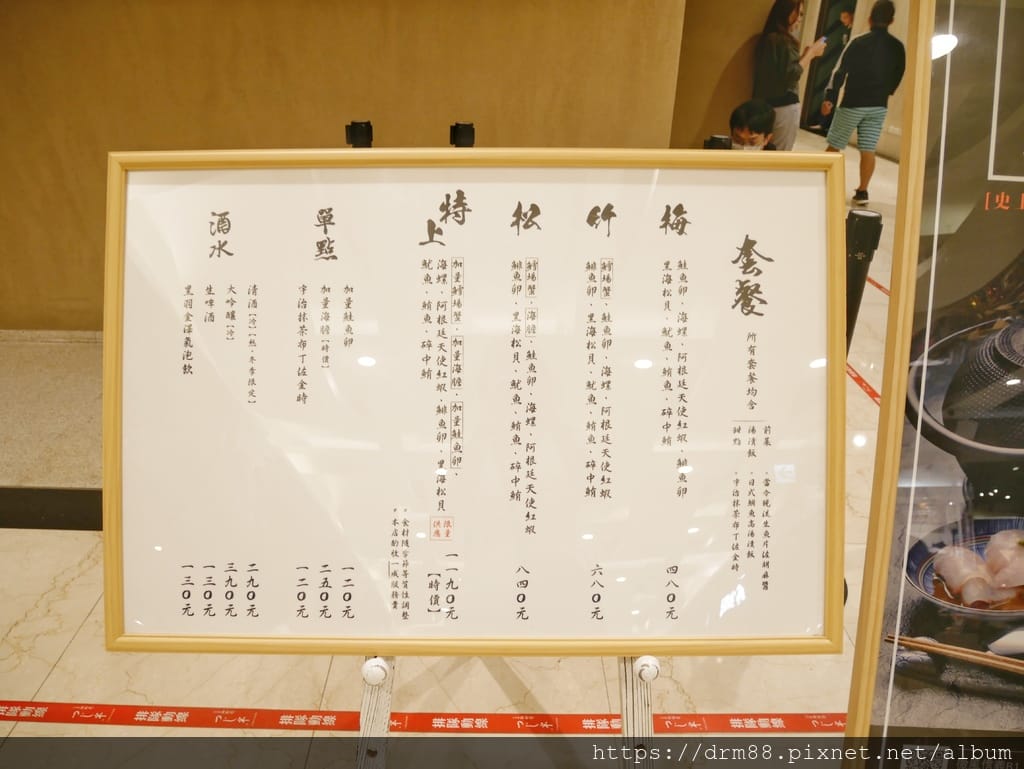 套餐
所有套餐均含
前菜・當令現流生魚片佐胡麻醬
湯漬飯・日式鯛魚高湯漬飯
甜點・宇治抹茶布丁佐金時
梅
鮭魚卵・海螺・阿根廷天使紅蝦・鯡魚卵
黑海松貝・魷魚・鮪魚・碎中鮪
四八〇元
竹
鱈場蟹・鮭魚卵・海螺・阿根廷天使紅蝦
鯡魚卵・黑海松貝・魷魚・鮪魚・碎中鮪
六八〇元
松
鱈場蟹・海膽・鮭魚卵・海螺・阿根廷天使紅蝦
鯡魚卵・黑海松貝・魷魚・鮪魚・碎中鮪
八四〇元
特上
加量鱈場蟹・加量海膽・加量鮭魚卵・
海螺・阿根廷天使紅蝦・鯡魚卵・黑海松貝
魷魚・鮪魚・碎中鮪
限量供應
一一九〇元
【時價】
*食材隨季節等質性調整
*本店酌收一成服務費
單點
加量鮭魚卵
一二〇元
加量海膽【時價】
二五〇元
宇治抹茶布丁佐金時
一二〇元
酒水
清酒【冷】【熱・冬季限定】
二九〇元
大吟釀【冷】
三九〇元
生啤酒
一三〇元
黑羽金澤氣泡飲
一三〇元
排隊動線
つじ半
排隊動線
排隊動線
排隊
排隊動線
つじ半
https://drm88.pixnet.net/album